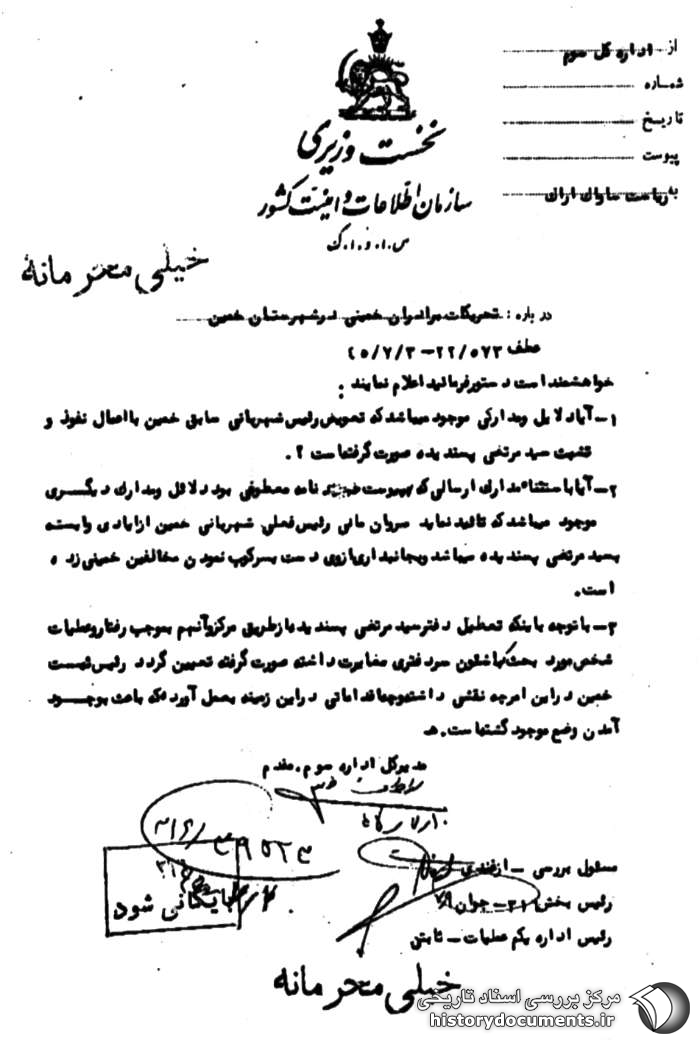 از اداره کل سوم
شماره
تاریخ
پیوست
به ریاست ساواک اراک
نخست وزیری
سازمان اطلاعات و امنیت کشور
س.ا.و.ا.ک
خیلی محرمانه
درباره : تحریکات برادران خمینی در شهرستان خمین
عطف ۲۲/۵۷۳-۴۵/۷/۳
خواهشمند است دستور فرمائید اعلام نمایند :
۱- آیا دلایل و مدارکی موجود میباشد که تعویض رئیس شهربانی سابق خمین با اعمال نفوذ و
تشبث سید مرتضی پسندیده صورت گرفته است ؟ .
۲- آیا باستثناء مدارک ارسالی که بپیوست نامه معطوفی بود دلائل و مدارک دیگری
موجود میباشد که تائید نماید سروان مانی رئیس فعلی شهربانی خمین از ایادی وابسته
بسید مرتضی پسندیده میباشد و بجانبداری از وی دست بسرکوب نمودن مخالفین خمینی زده
است.
۳- با توجه باینکه تعطیل دفتر سید مرتضی پسندیده از طریق مرکز و آنهم بموجب رفتار و عملیات
شخص مورد بحث که با شئون سردفتری مغایرت داشته صورت گرفته تعیین گردد رئیس ثبت
خمین در این امر چه نقشی داشته و چه اقداماتی در این زمینه بعمل آورده که باعث بوجود
آمدن وضع موجود گشته است. هـ
مدیرکل اداره سوم. مقدم
۳۱۶/۳۹۵۲۳
بایگانی شود
مسئول بررسی - ازغندی
رئیس بخش ۳۱۶ - جوان
رئیس اداره یکم عملیات - ثابتی
خیلی محرمانه
مرکز بررسی اسناد تاریخی
historydocuments.ir